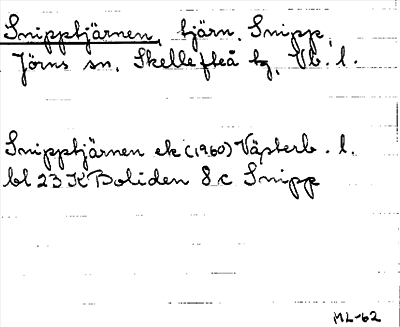 Snipptjärnen, tjärn. Snipp,
Jörns sn, Skellefteå tg, Vb. l.
Snipptjärnen ek (1960) Västerb. l.
bl 23 K Boliden 8 c Snipp
ML-62